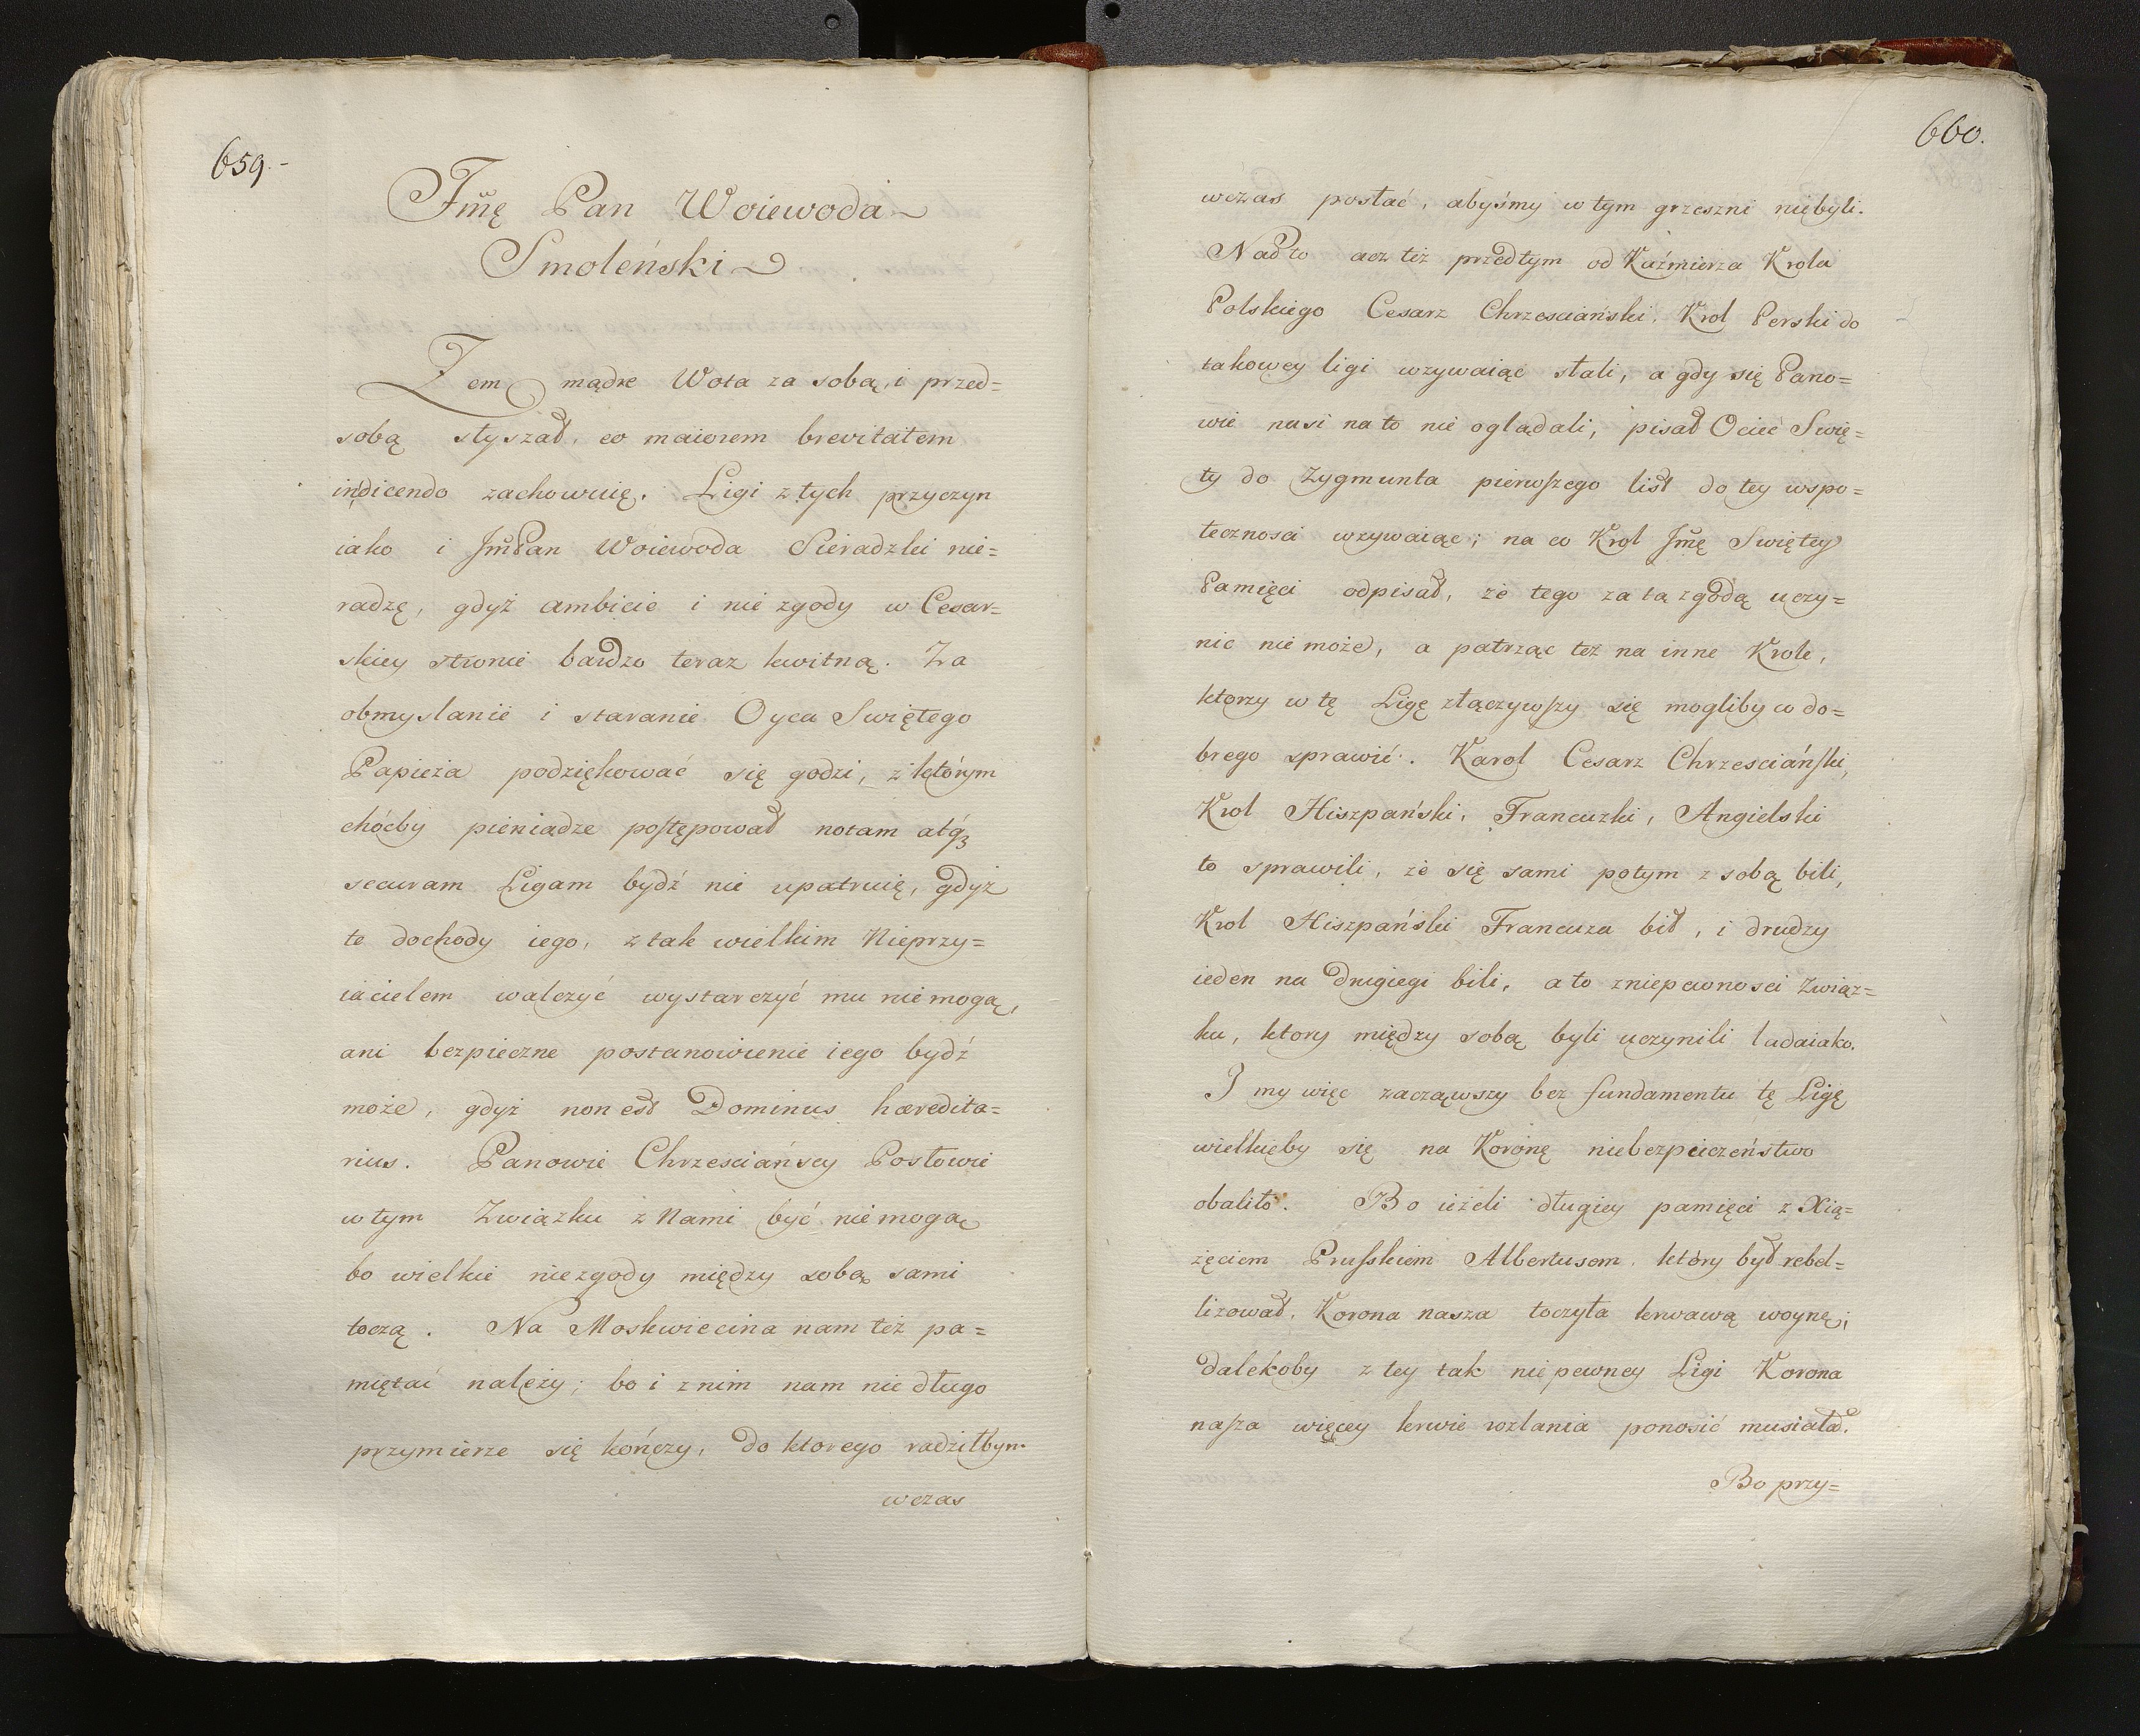 659.-
Jmę Pan Woiewoda
Smoleński
Zem mądre Wota za sobą, i przed=
sobą słyszał, eo maiorem brevitatem
indicendo zachowuię. Ligi z tych przyczyn
iako i JmPan Woiewoda Sieradzki nie=
radzę, gdyż ambicie i nie zgody w Cesar=
skiey stronie bardzo teraz kwitną. Za
obmyslanie i staranie Oyca Swiętego
Papieża podziękować się godzi, z którym
chócby pieniądze postępował notam atq3
securam Ligam bydź nie upatruię, gdyż
te dochody iego, z tak wielkim Nieprzy=
iacielem walczyć wystarczyć mu nie mogą,
ani bezpieczne postanowienie iego bydź
może, gdyż non est Dominus hæredita=
rius. Panowie Chrzesciańscy Posłowie
w tym Związku z Nami być nie mogą
bo wielkie niezgody między sobą sami
toczą. Na Moskwiecina nam też pa=
miętać należy; bo i z nim nam nie długo
przymierze się kończy, do ktorego radziłbym
wczas
660.
wczas posłać, abyśmy w tym grzeszni niebyli.
Nadto acz też przedtym od Kaźmierza Krola
Polskiego Cesarz Chrzesciański, Krol Perski do
takowey ligi wzywaiąc słali, a gdy się Pano=
wie nasi na to nie oglądali, pisał Ociec Swię=
ty do Zygmunta pierwszego list do tey wspo=
łecznosci wzywaiąc; na co Krol Jmę Swiętey
Pamięci odpisał, że tego za tą zgodą uczy=
nic nie może, a patrząc też na inne Krole,
ktorzy w tę Ligę złączywszy się mogliby co do=
brego sprawić. Karol Cesarz Chrzesciański,
Krol Hiszpański, Francuzki, Angielski
to sprawili, że się sami potym z sobą bili,
Krol Hiszpański Francuza bił, i drudzy
ieden na drugiegi bili, a to z niepewnosci Związ=
ku, ktory między sobą byli uczynili ladaiako.
I my więc zacząwszy bez fundamentu tę Ligę
wielkieby się na Koronę niebezpieczeństwo
obaliło. Bo ieżeli długiey pamięci z Xią=
żęciem Prusskiem Albertusem, który był rebel=
lizował, Korona nasza toczyła krwawą woynę;
dalekoby z tey tak nie pewney Ligi Korona
nasza więcey krwie rozlania ponosić musiała.
Bo przy=